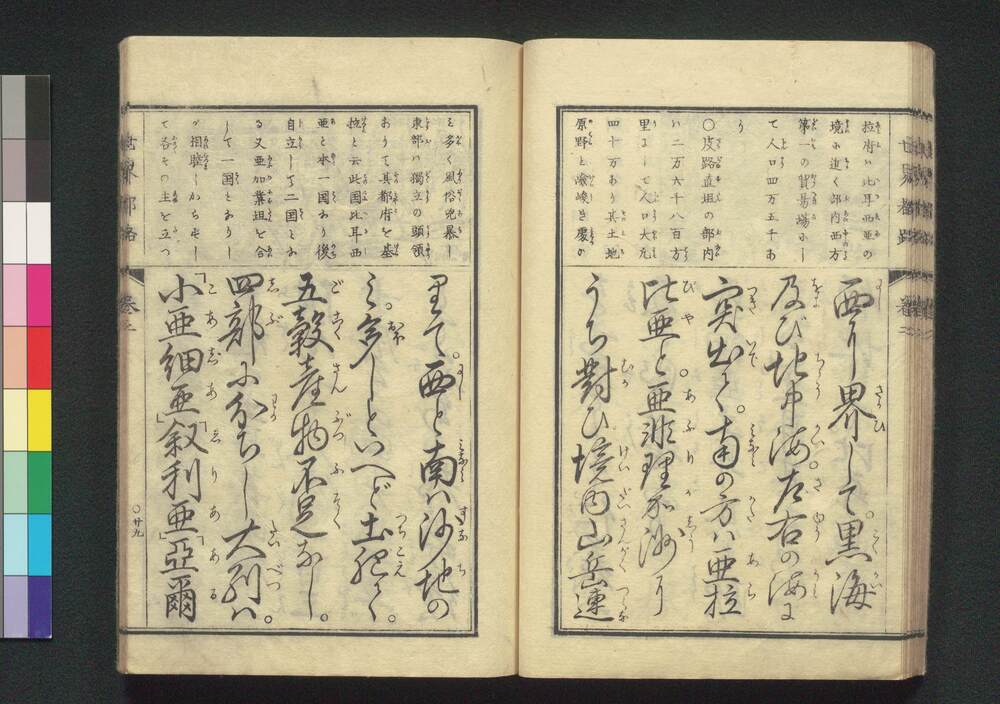 拉府ハ比耳西亜の
境に近く部内西方
第一の貿易場にし
て人口四万五千あ
り
○皮路直坦の部内
ハ二万六千八百方
里にして人口大凡
四十万あり其土地
原野と嶮峻き慶か
西に界して。黒海
及び地中海。左右の海に
突出て。南の方ハ亜拉
比亜と。亜非理加洲に
うち對ひ境内山岳連
を多く風俗兇暴し
東部ハ獨立の頭領
ありて其都府を基
拉と云此国比耳西
亜と本一国あり後
自立して二国とな
る又亜加業坦を合
して一国とありし
が相睦しからずし
て各その主を立つ
りて。西と南ハ沙地の
ミ。多しといへど土肥て。
五穀産物不足なし。
四部に分ちし大別ハ。
「小亜細亜」「叙利亜」「亞爾
世界都路
巻二
○廿九